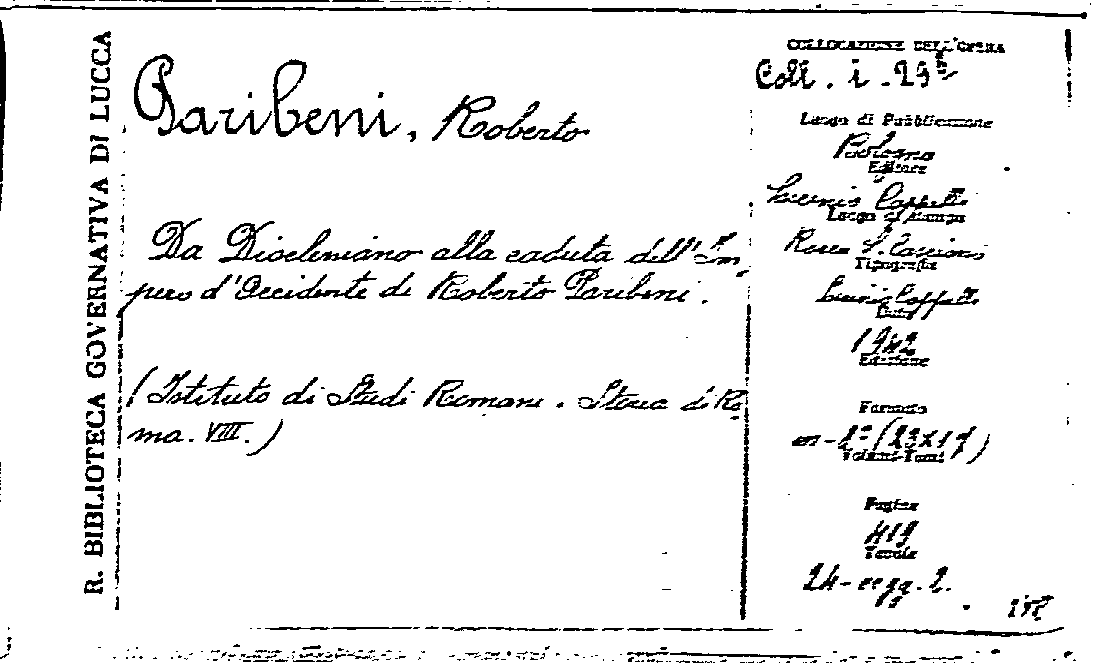 R. BIBLIOTECA GOVERNATIVA DI LUCCA
Paribeni, Roberto
Da Diocleziano alla caduta dell'Im-
pero d'Occidente di Roberto Paribeni.
(Istituto di Studi Romani. Storia di Ro-
ma. VIII.)
COLLOCAZIONE DELL'OPERA
Coll. i. 29
Luogo di Pubblicazione
Bologna
Editore
Licinio Cappelli
Luogo di Stampa
Rocca S. Casciano
Tipografia
Licinio Cappelli
Data
1942
Edizione
Formato
(23x17)
Volumi-Tomi
Pagine
419
Tavole
24